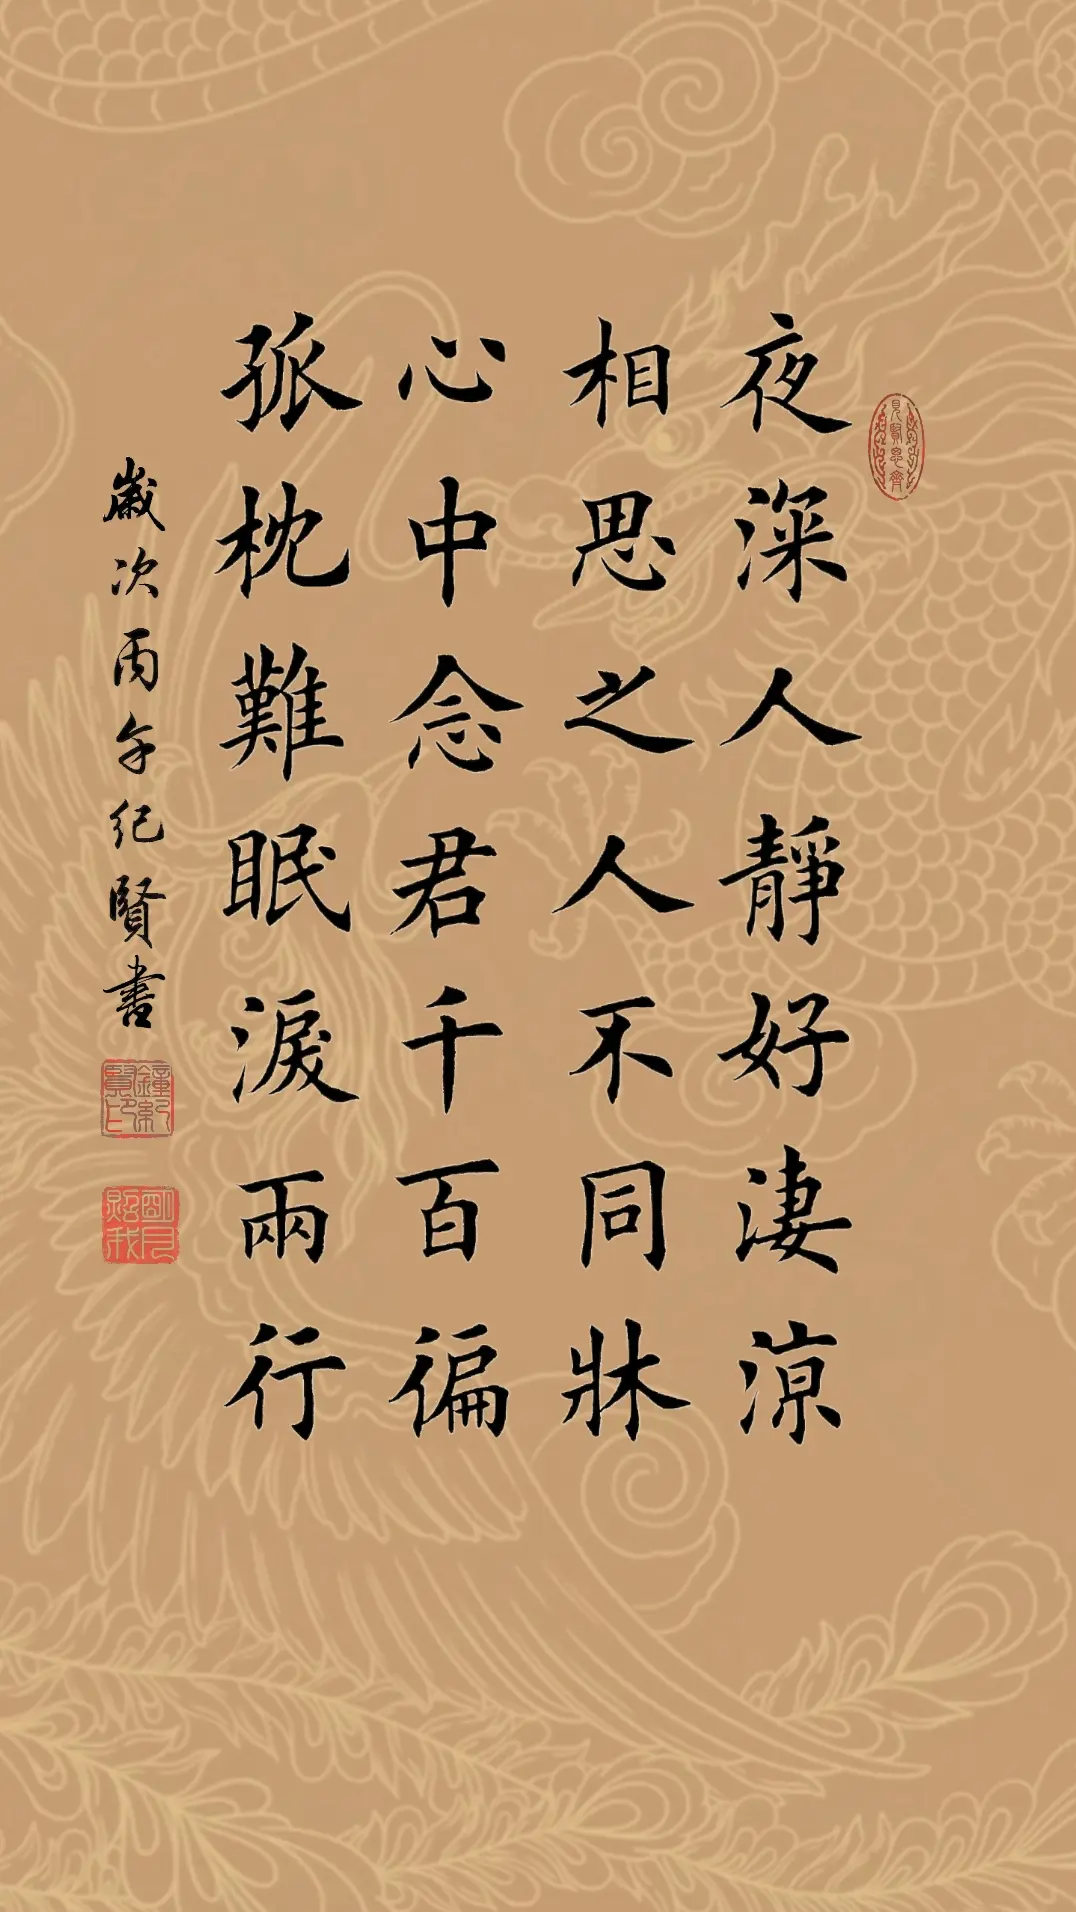 夜深人靜好淒涼
相思之人不同牀
心中念君千百徧
孤枕難眠淚兩行
歲次丙午紀賢書
見賢思齊
鐘紀賢印